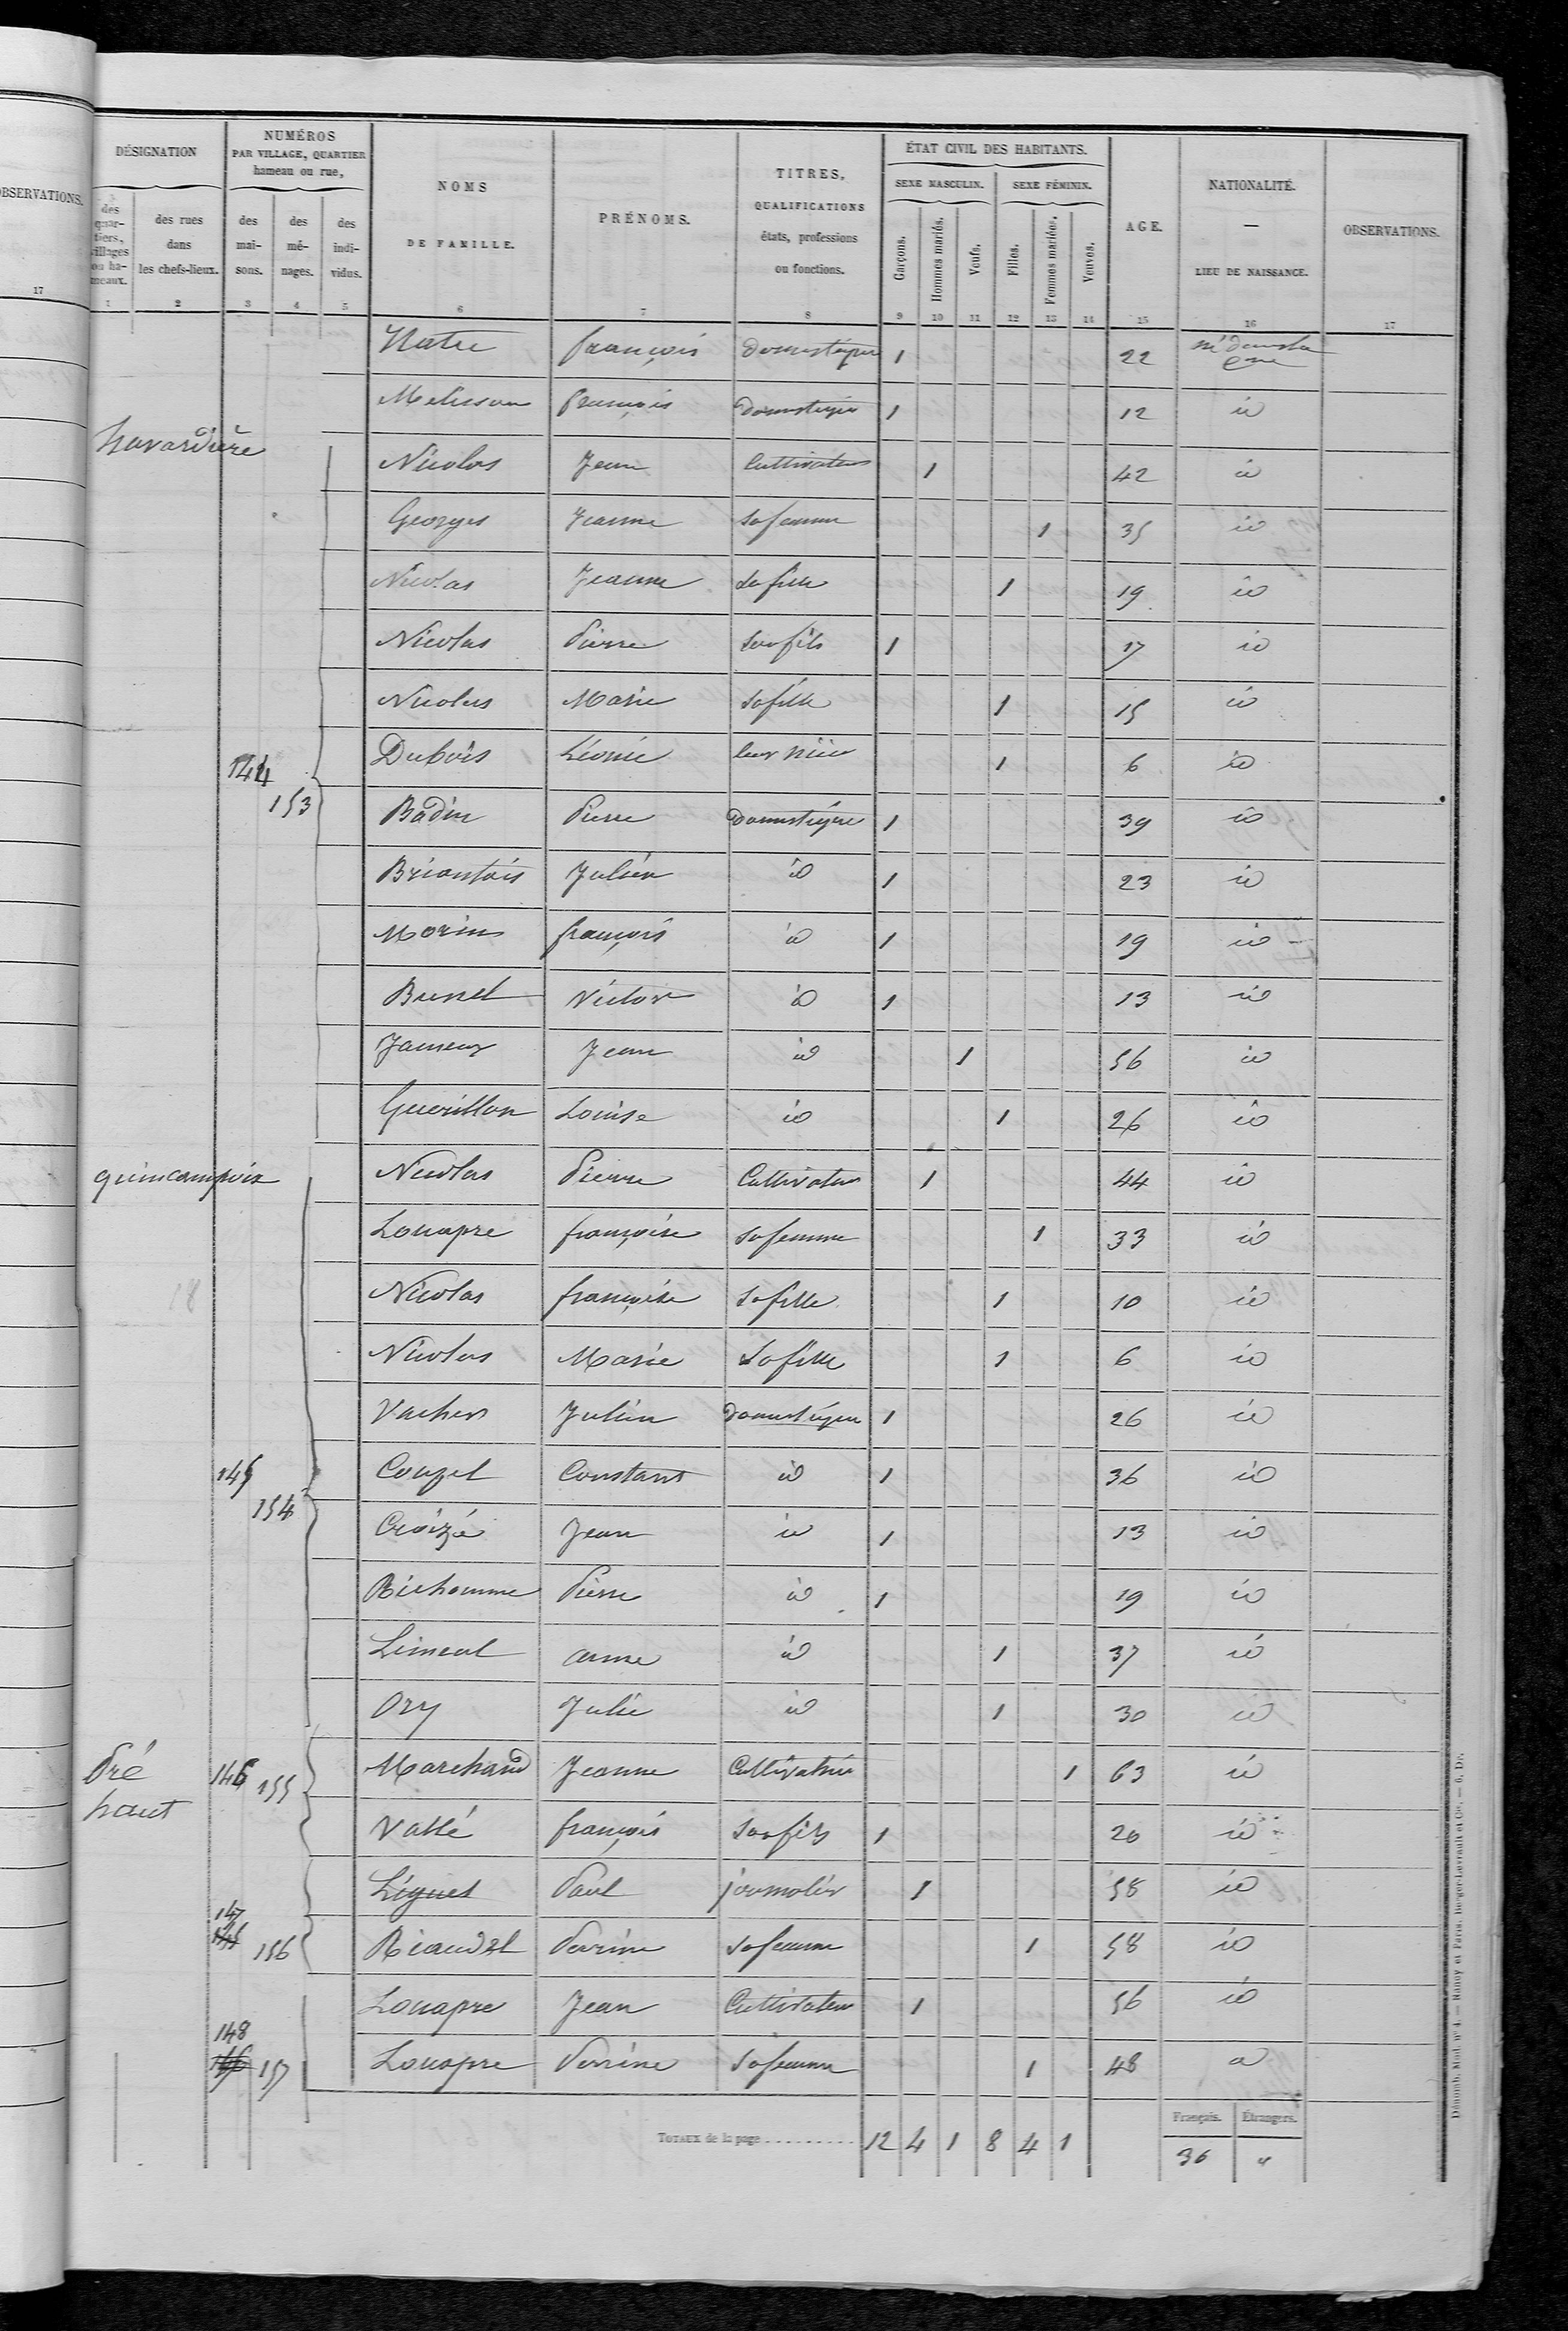 OBSERVATIONS.
17
DÉSIGNATION
NUMÉROS
PAR VILLAGE, QUARTIER
hameau ou rue,
NOMS
DE FAMILLE.
PRÉNOMS.
TITRES,
QUALIFICATIONS
états, professions
ou fonctions.
ÉTAT CIVIL DES HABITANTS.
SEXE MASCULIN. SEXE FÉMININ.
AGE.
NATIONALITÉ.
—
LIEU DE NAISSANCE.
OBSERVATIONS.
des quar-tiers, villages ou ha-meaux.
des rues dans les chefs-lieux.
des mai-sons.
des mé-nages.
des indi-vidus.
Garçons. Hommes mariés. Veufs. Filles. Femmes mariées. Veuves.
1 2 3 4 5 6 7 8 9 10 11 12 13 14 15 16 17
françois domestique 1 22 né dans la
Cne
françois domestique 1 12 id
havardière
Nicolas Jean Cultivateur 1 42 id
Georges Jeanne sa femme 1 35 id
Nicolas Jeanne sa fille 1 19 id
Nicolas Pierre son fils 1 17 id
Nicolas Marie sa fille 1 15 id
144 Dubois Léonie leur nièce 1 6 id
153 Badin Pierre domestique 1 39 id
Briantais Julien id 1 23 id
Morin françois id 1 19 id
Brunel Victor id 1 13 id
Jean id 1 56 id
Guerillon Louise id 1 26 id
quincampoix Nicolas Pierre Cultivateur 1 44 id
Louapre françoise sa femme 1 33 id
18 Nicolas françoise sa fille 1 10 id
Nicolas Marie sa fille 1 6 id
Vacher Julien domestique 1 26 id
145 Couzel Constant id 1 36 id
154 Croizé Jean id 1 13 id
Richomme Pierre id 1 19 id
Limeul anne id 1 37 id
Ory Julie id 1 30 id
Pré 146 155 Marchand Jeanne Cultivatrice 1 63 id
haut
Vallé françois son fils 1 20 id
Liguet Paul journalier 1 58 id
147
156 Riaudel Perrine sa femme 1 58 id
Louapre Jean Cultivateur 1 56 id
148
157 Louapre Perrine sa femme 1 48 id
Français. Étrangers.
TOTAUX de la page.......... 12 4 1 8 4 1 36 "
Dénomb. Mod. n° 4. — Nancy et Paris. Berger-Levrault et Cie. — 6. D.